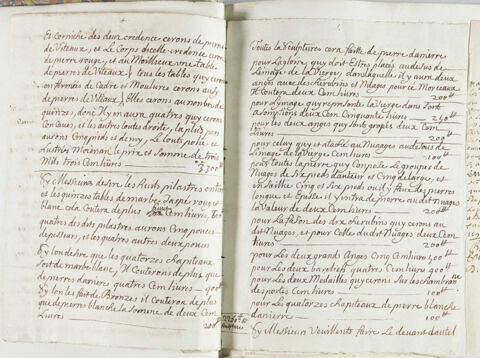 Et corniche des deux credence cerons de pierre
de Viteaux, et Le Corps dicelle credence ceron
de pierre rouge, et au Moilleux une table
de pierres de Viteaux, tous les tables quy ceron
enfermées de Cadre et Moulures cerons aussy
de pierres de Viteaux, Elles cerons au nombre de
quinzes, dont il y en aura quatres quy cerons
Concaves, et les autres toutte droite, la plus
aurons Cinq pieds et demy, Le tout polie et
Lustrés Moienan le prix et Somme de trois
Mils trois Cent livres 3300
Sy Messieurs desire les huits pilastres entier
et les quinzes tables de marbre Jaspé rouge et
blanc, cela Coutera de plus Cent livres, et
quatres des dits pilastres aurons Cinq pouces
depesseurs, et les quatres autres deux pouces
Sy lon desire que les quatorzes chapiteaux
Soit de marbre blanc, Il Couterons de plus que
de pierres danieres quatres Cent livres 400
Sy lon les fait de Bronzes il Couterons de plus
que de pierres blanche la Somme de deux Cent
Livres 200
Toutte la Sculptures cera faitte de pierre danierre
pour La gloire, quy doit Estres placés audesus de
Limage de la Vierge, dans laquelle il y aura deux
anges avec des cherubins et Nuages pour ce Morceaux
Il Coutera deux Cent livres 200
pour Lymage representé la Vierge dans Son
asomptions deux Cent Cinquante livres 250
pour les deux anges quy Sont groupés deux Cent
Livres 200
pour celuy quy et ataché au Nuages audesus de
Limage de la Vierge Cent livres 100
pour touttes la pierre, quy Conpose Le groupes de
Nuages de Six pieds d'auteur et Cinq de large, et
en Saillie Cinq et Six pieds ou il y faux de pierres
longue et Epaisse il y entrera de pierre au dit Nuages
la Valeur de deux Cent livres 200
pour La fason des dix cherubins quy cerons au
dit Nuages, et pour Celle dudit Nuages deux Cent
livres 200
pour Les deux grands Anges Cinq Cent livres 500
pour Les deux bareliefs quatres Cent livres 400
pour Les deux Medailles quy cerons Sur les chambran
des portes Cent livres 100
pour Les quatorzes chapiteaux de pierre blanche
danierre 100
Sy Messieurs Veuillents faire Le devant dautel